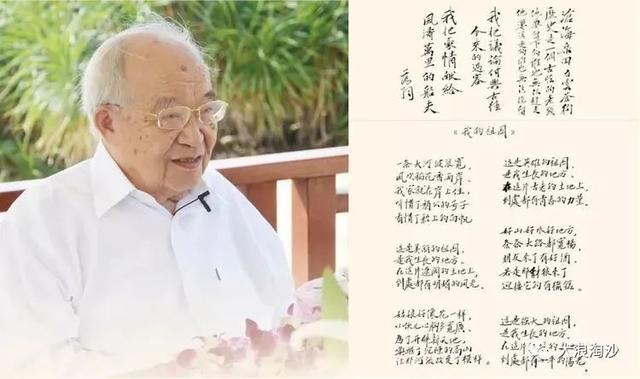 我把议论付与古往
今来的过客
我把豪情献给
风涛万里的船夫
乔羽
《我的祖国》
一条大河波浪宽，
风吹稻花香两岸。
我家就在岸上住，
听惯了艄公的号子
看惯了船上的白帆
这是美丽的祖国，
是我生长的地方。
在这片辽阔的土地上，
到处都有明媚的风光。
姑娘好像花一样，
小伙儿心胸多宽广。
为了开辟新天地，
唤醒了沉睡的高山
让那河流改变了模样。
这是英雄的祖国，
是我生长的地方。
在这片古老的土地上，
到处都有青春的力量。
好山好水好地方，
条条大路都宽畅。
朋友来了有好酒，
若是那豺狼来了
迎接它的有猎枪。
这是强大的祖国，
是我生长的地方。
到处都有和平的阳光
大浪淘沙